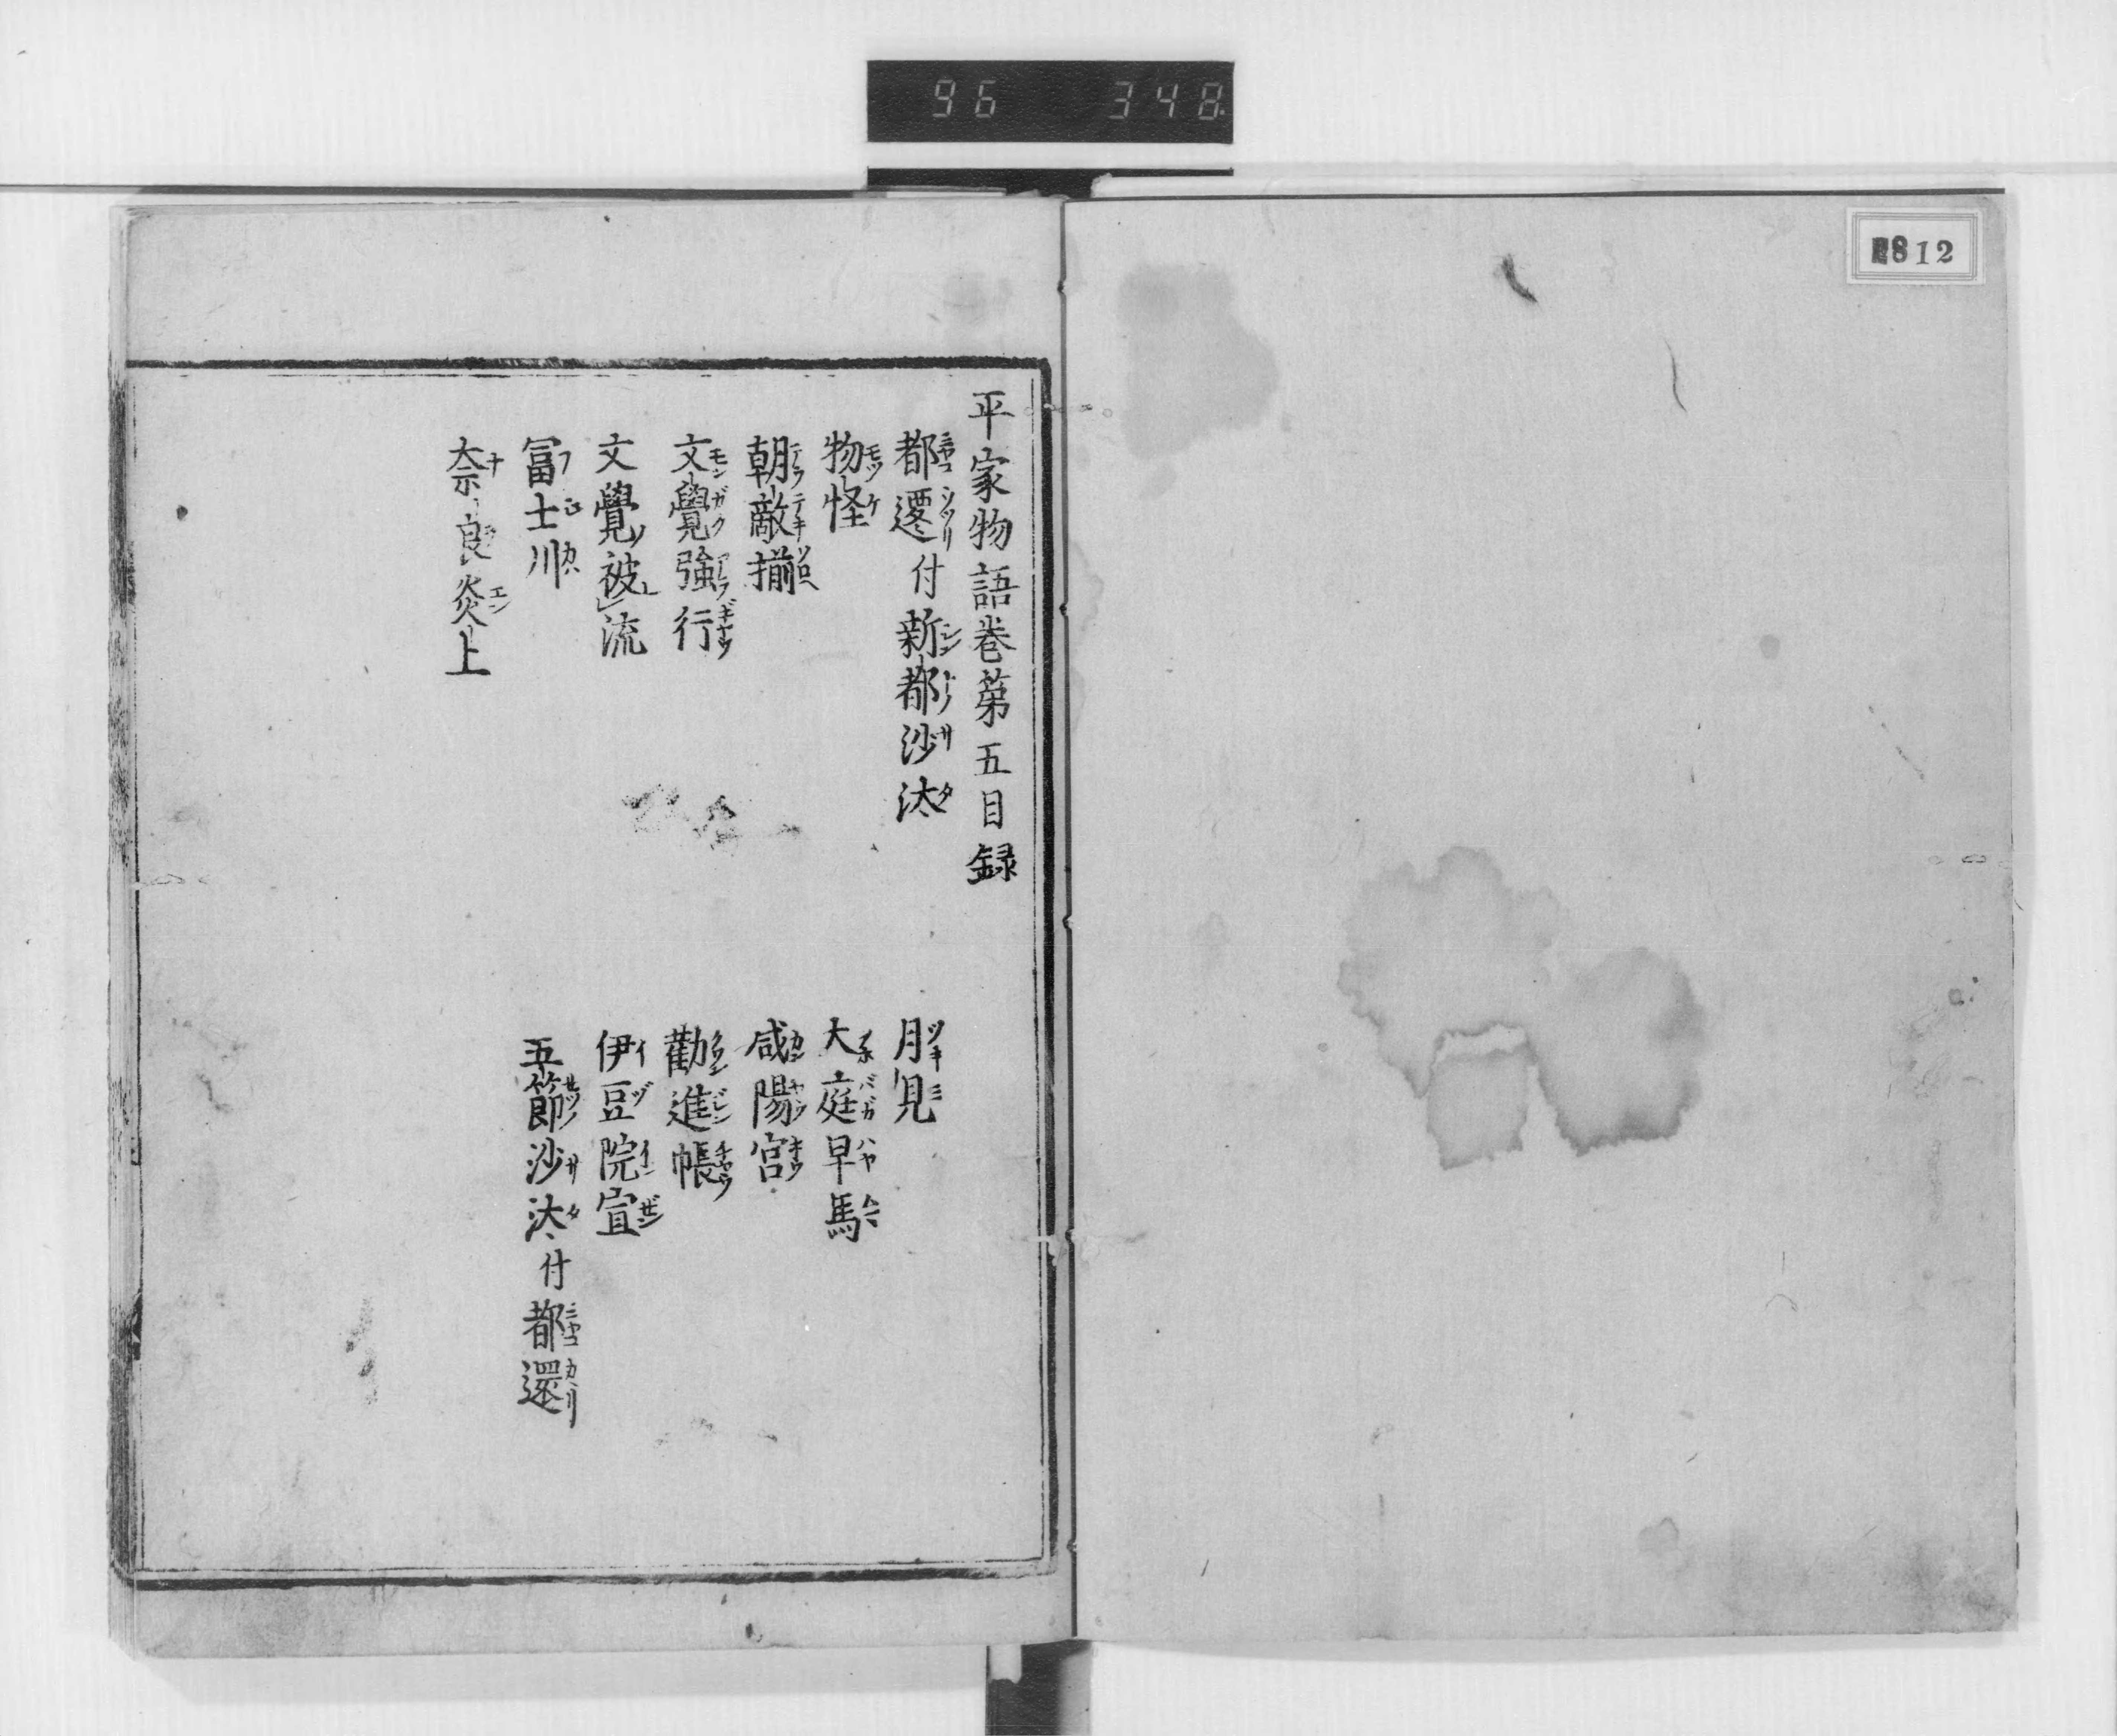 96 348
812
平家物語巻第五目録
都遷付新都沙汰
月見
物怪
大庭早馬
朝敵揃
咸陽宮
文覺強行
勸進帳
文覺被流
伊豆院宣
冨士川
五節沙汰付都還
奈良炎上